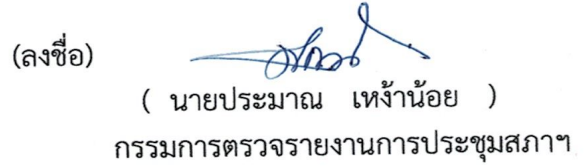 (ลงชื่อ)
( นายประมาณ เหง้าน้อย )
กรรมการตรวจรายงานการประชุมสภาฯ